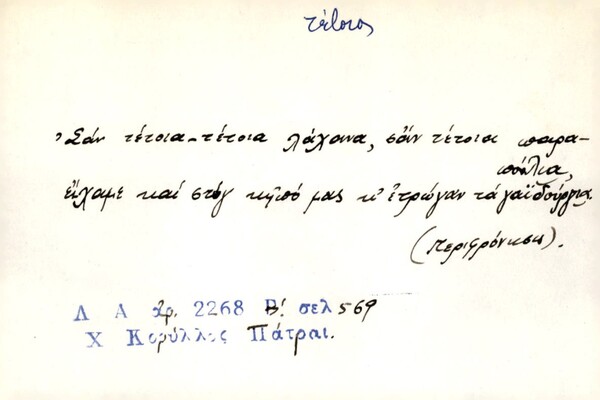 τέτοιος
Σάν τέτοια-τέτοια λάχανα, σάν τέτοια παρα-
πούλια,
εἴχαμε καί στόγ κῆπό μας κ' ἐτρώγαν τά γαϊδούργια.
(Περιφρόνησις).
Λ Α ἀρ. 2268 Β! σελ 569
Χ Κορύλλος Πάτραι.